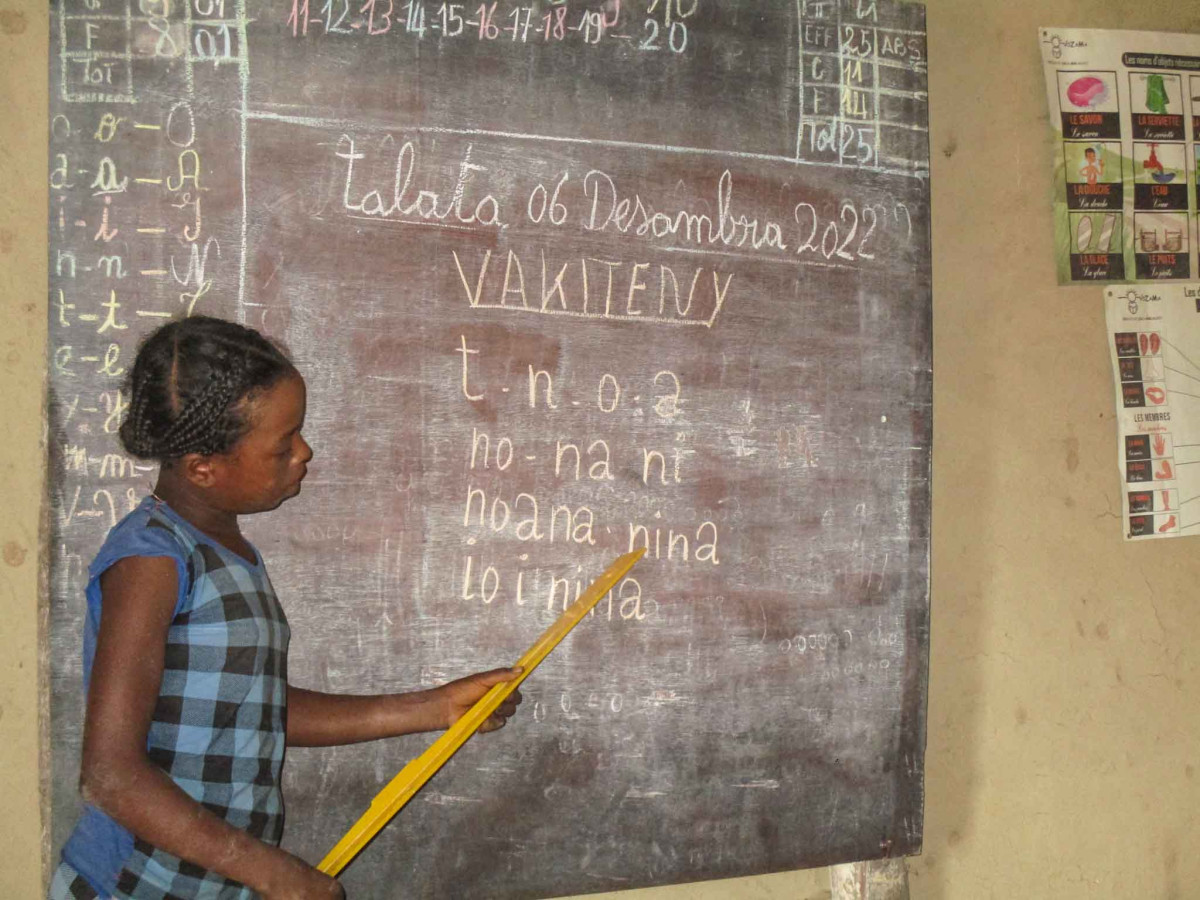 F 8 01
TOT
11-12-13-14-15-16-17-18-19-20
EFF 25 ABS
G 11
F 14
Tot 25
o - O
a - a - A
i - i - I
n - n - N
t - t - T
e - e
y - y
m - m -
talata 06 Desambra 2022
VAKITENY
t - n - o - a
no - na ni
noana - nina
lo i nina
Les noms d'objets
LE SAVON LA SERVIETTE
Le savon La serviette
LA DOUCHE L'EAU
La douche L'eau
LA GLACE LE PUITS
La glace Le puits
LES MEMBRES